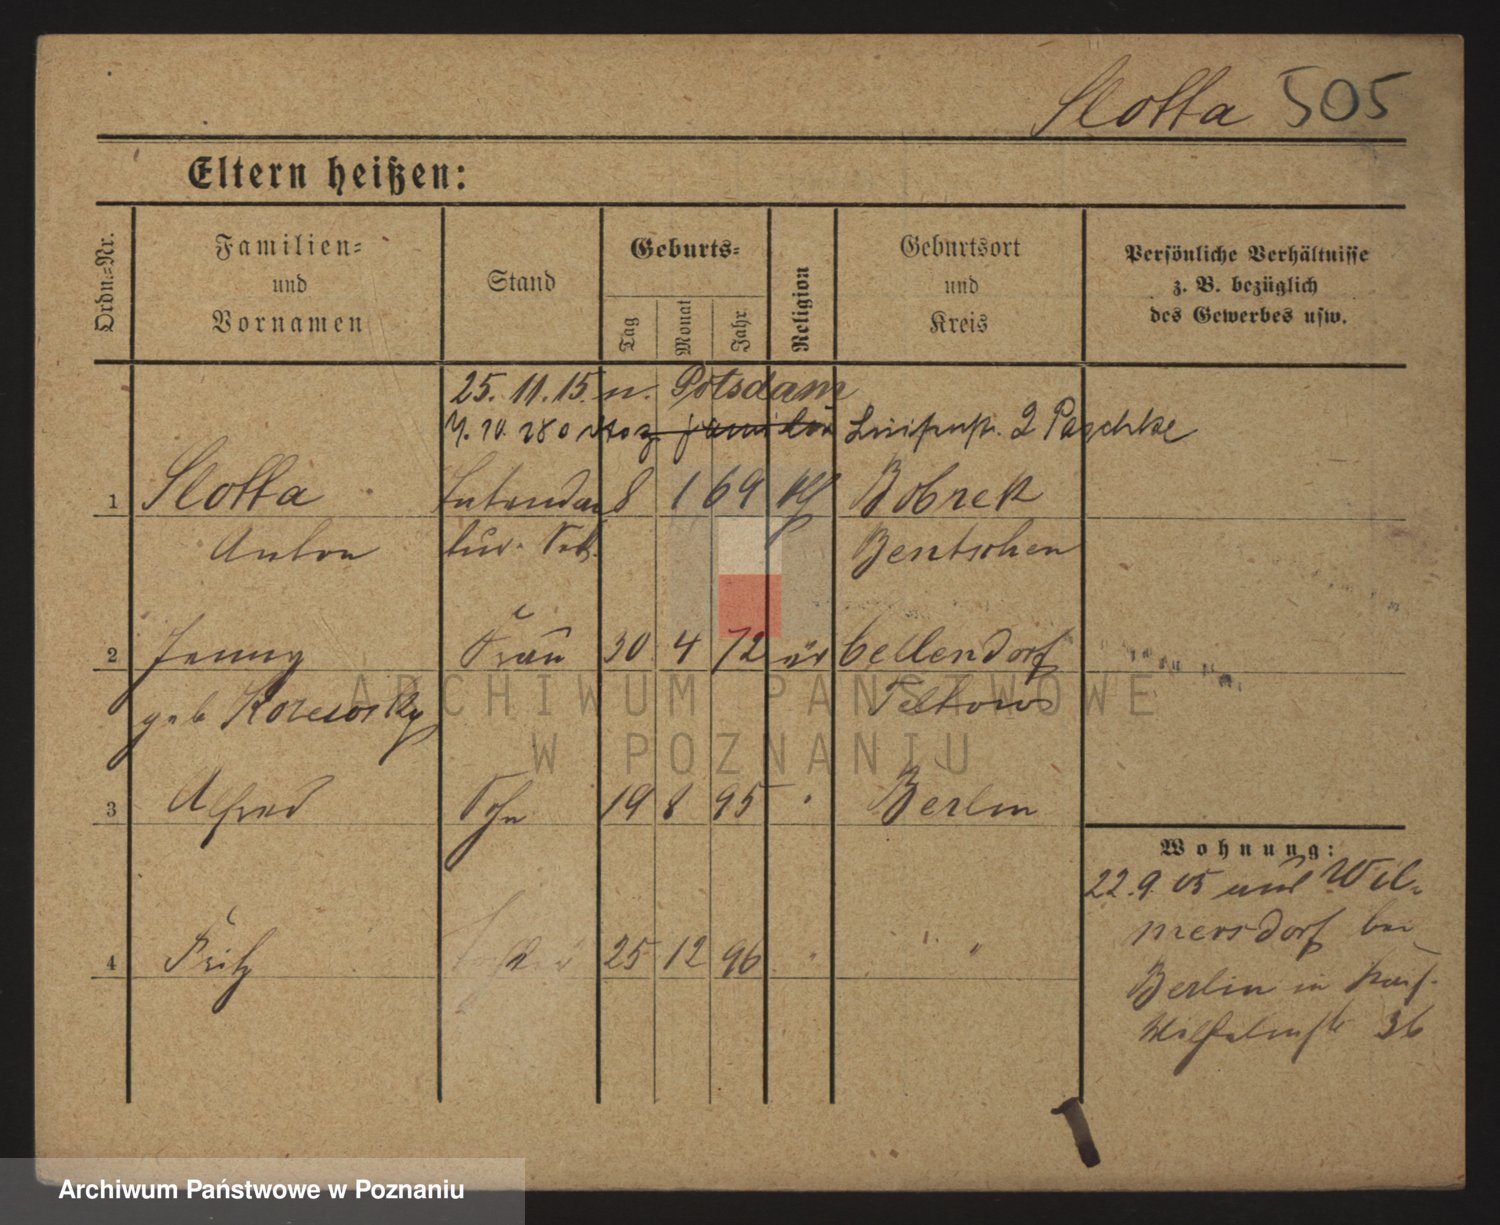 Slotta 505
Eltern heißen:
Ordn.=Nr.
Familien=
und
Vornamen
Stand
Geburts=
Tag
Monat
Jahr
Religion
Geburtsort
und
Kreis
Persönliche Verhältnisse
z. B. bezüglich
des Gewerbes usw.
25. 11. 15. n. Potsdam
2 Paschke
1 Slotta 8 1 69 Bobrek
Anton Bentschen
2 Jenny Frau 30 4 72 Cellendorf
geb Teltow
3 Alfred Sohn 19 8 95 " Berlin
4 Fritz 25 12 96 " "
Wohnung:
22.9.05 nach Wil-
mersdorf bei
Berlin in
36
ARCHIWUM PAŃSTWOWE
W POZNANIU
Archiwum Państwowe w Poznaniu